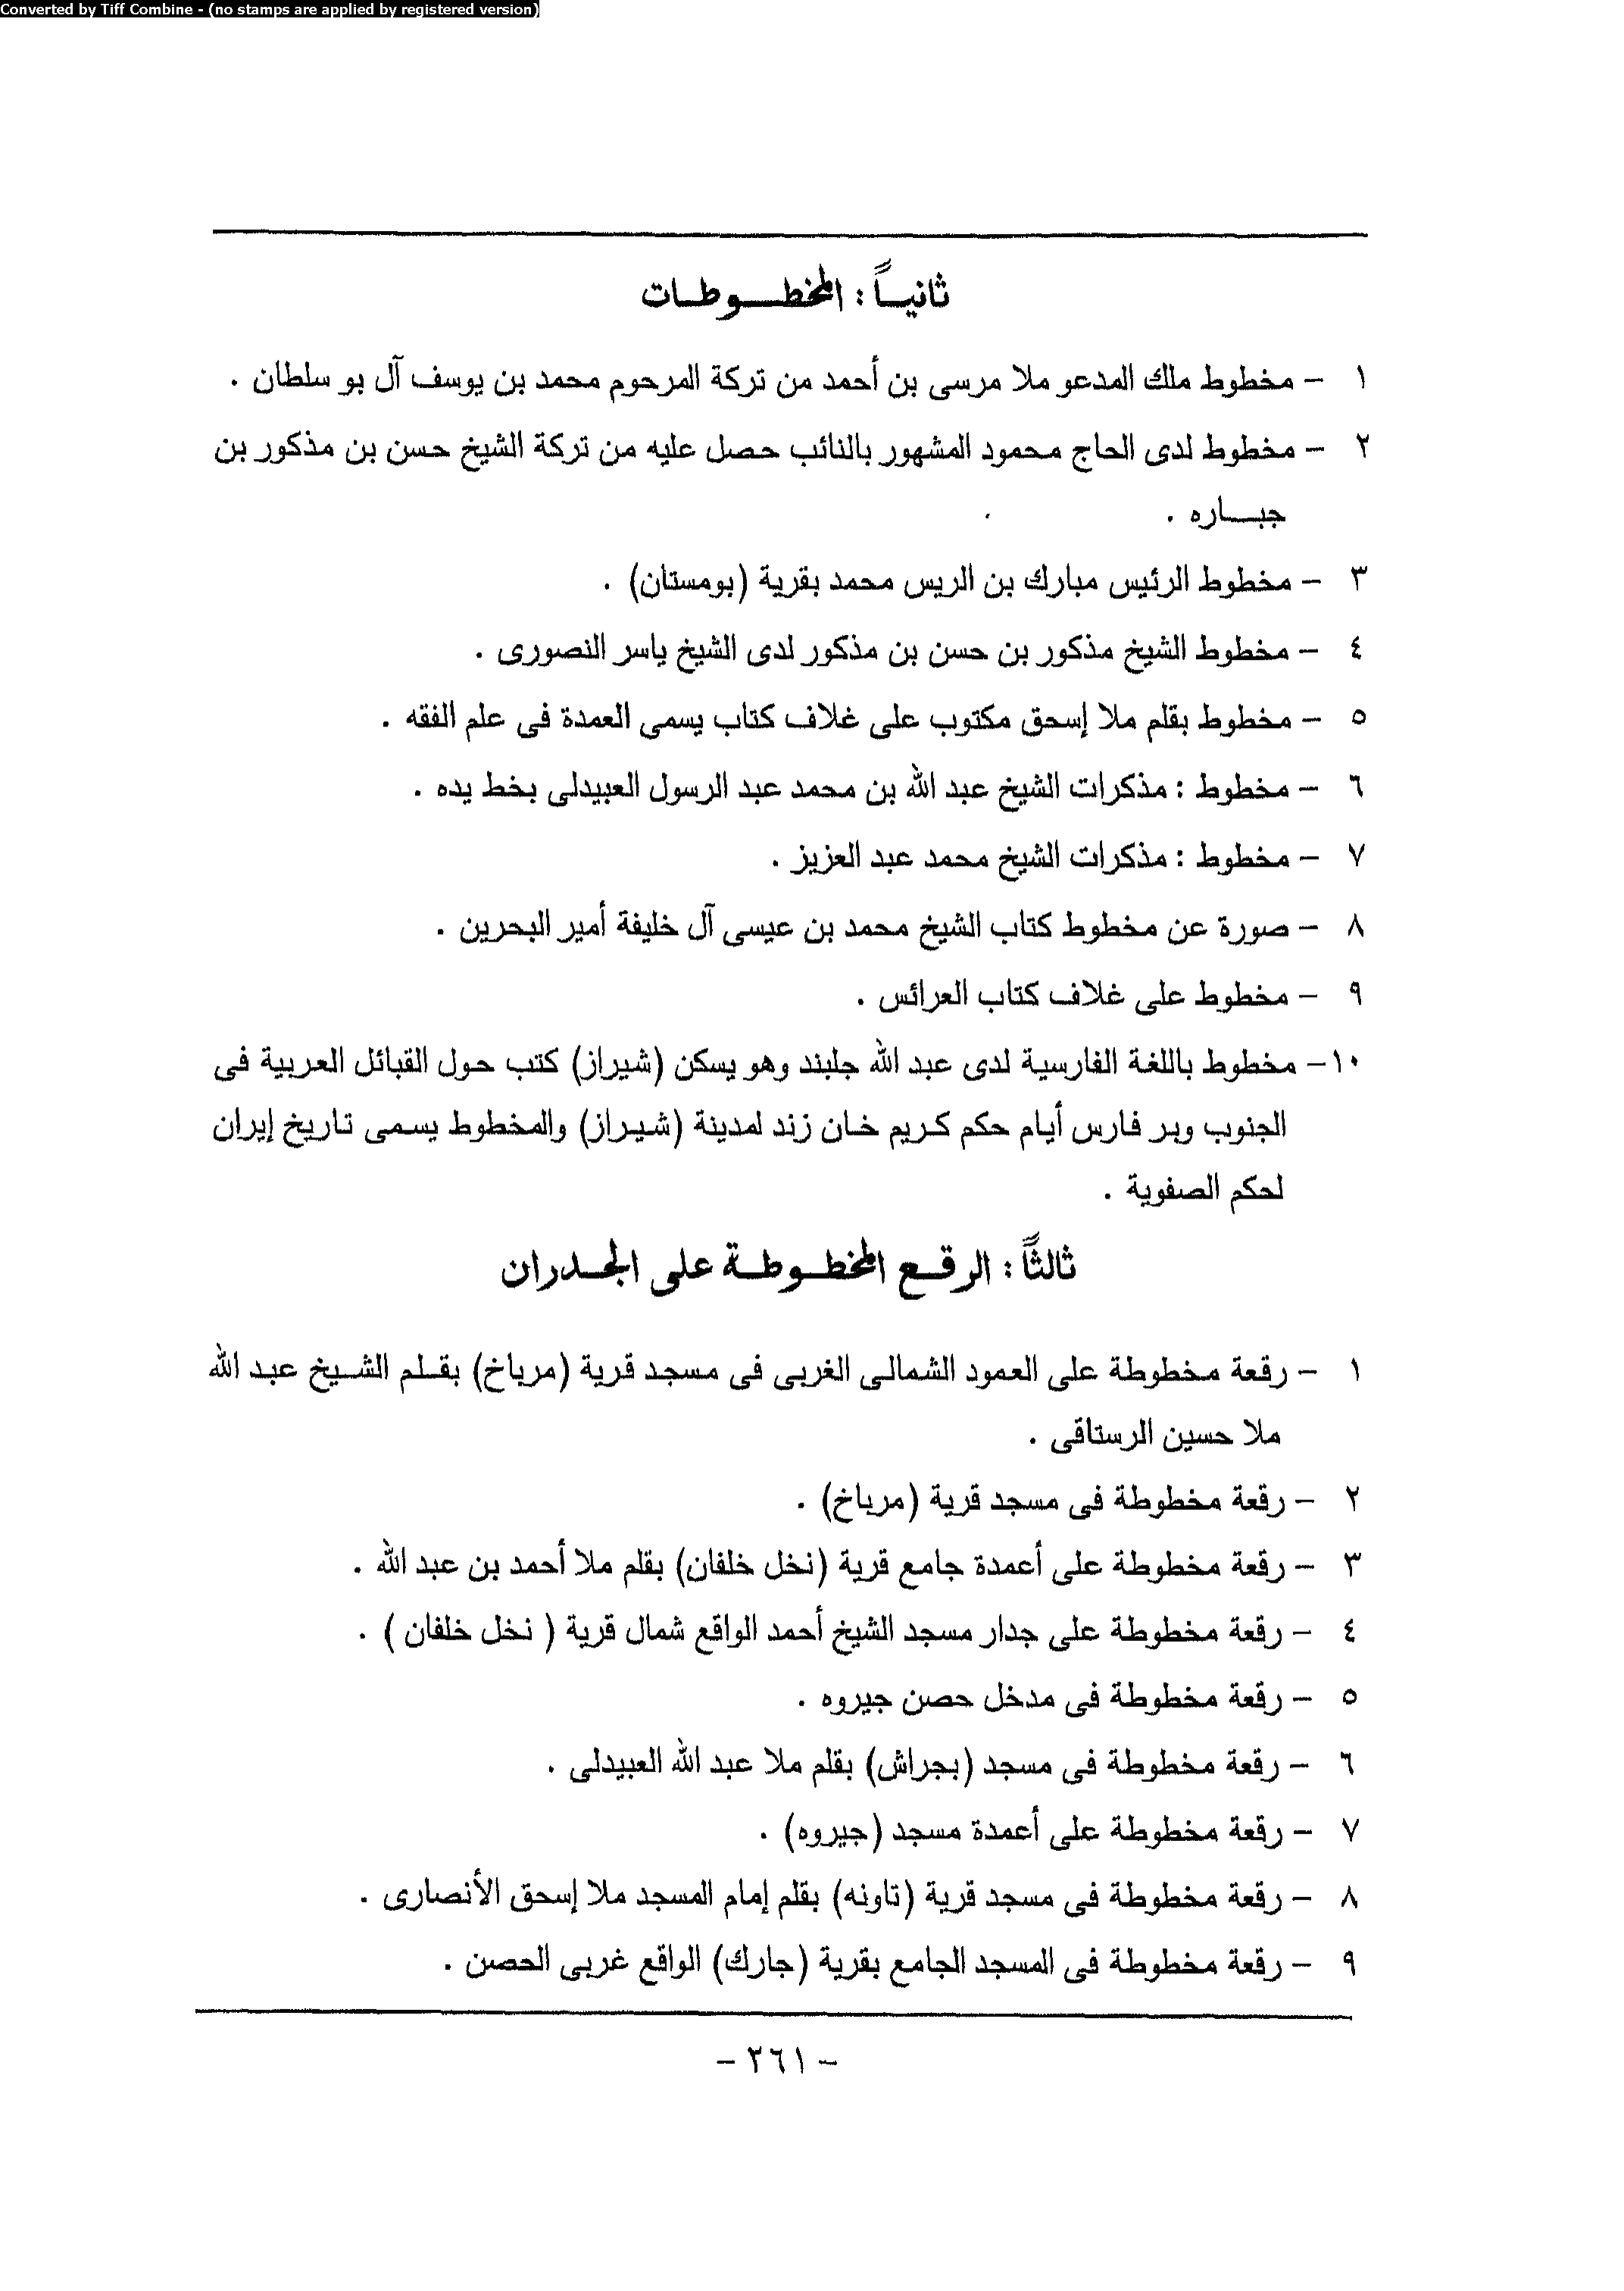 Converted by Tiff Combine - (no stamps are applied by registered version)
ثانياً : المخطوطات
١ – مخطوط ملك المدعو ملا مرسى بن أحمد من تركة المرحوم محمد بن يوسف آل بو سلطان .
٢ – مخطوط لدى الحاج محمود المشهور بالنائب حصل عليه من تركة الشيخ حسن بن مذكور بن
جباره .
٣ – مخطوط الرئيس مبارك بن الريس محمد بقرية (بومستان) .
٤ – مخطوط الشيخ مذكور بن حسن بن مذكور لدى الشيخ ياسر النصورى .
٥ – مخطوط بقلم ملا إسحق مكتوب على غلاف كتاب يسمى العمدة فى علم الفقه .
٦ – مخطوط : مذكرات الشيخ عبد الله بن محمد عبد الرسول العبيدلى بخط يده .
٧ – مخطوط : مذكرات الشيخ محمد عبد العزيز .
٨ – صورة عن مخطوط كتاب الشيخ محمد بن عيسى آل خليفة أمير البحرين .
٩ – مخطوط على غلاف كتاب العرائس .
١٠– مخطوط باللغة الفارسية لدى عبد الله جلبند وهو يسكن (شيراز) كتب حول القبائل العربية فى
الجنوب وبر فارس أيام حكم كريم خان زند لمدينة (شيراز) والمخطوط يسمى تاريخ إيران
لحكم الصفوية .
ثالثاً : الرقع المخطوطة على الجدران
١ – رقعة مخطوطة على العمود الشمالى الغربى فى مسجد قرية (مرباخ) بقلم الشيخ عبد الله
ملا حسين الرستاقى .
٢ – رقعة مخطوطة فى مسجد قرية (مرباخ) .
٣ – رقعة مخطوطة على أعمدة جامع قرية (نخل خلفان) بقلم ملا أحمد بن عبد الله .
٤ – رقعة مخطوطة على جدار مسجد الشيخ أحمد الواقع شمال قرية ( نخل خلفان ) .
٥ – رقعة مخطوطة فى مدخل حصن جيروه .
٦ – رقعة مخطوطة فى مسجد (بجراش) بقلم ملا عبد الله العبيدلى .
٧ – رقعة مخطوطة على أعمدة مسجد (جيروه) .
٨ – رقعة مخطوطة فى مسجد قرية (تاونه) بقلم إمام المسجد ملا إسحق الأنصارى .
٩ – رقعة مخطوطة فى المسجد الجامع بقرية (جارك) الواقع غربى الحصن .
– ٢٦١ –